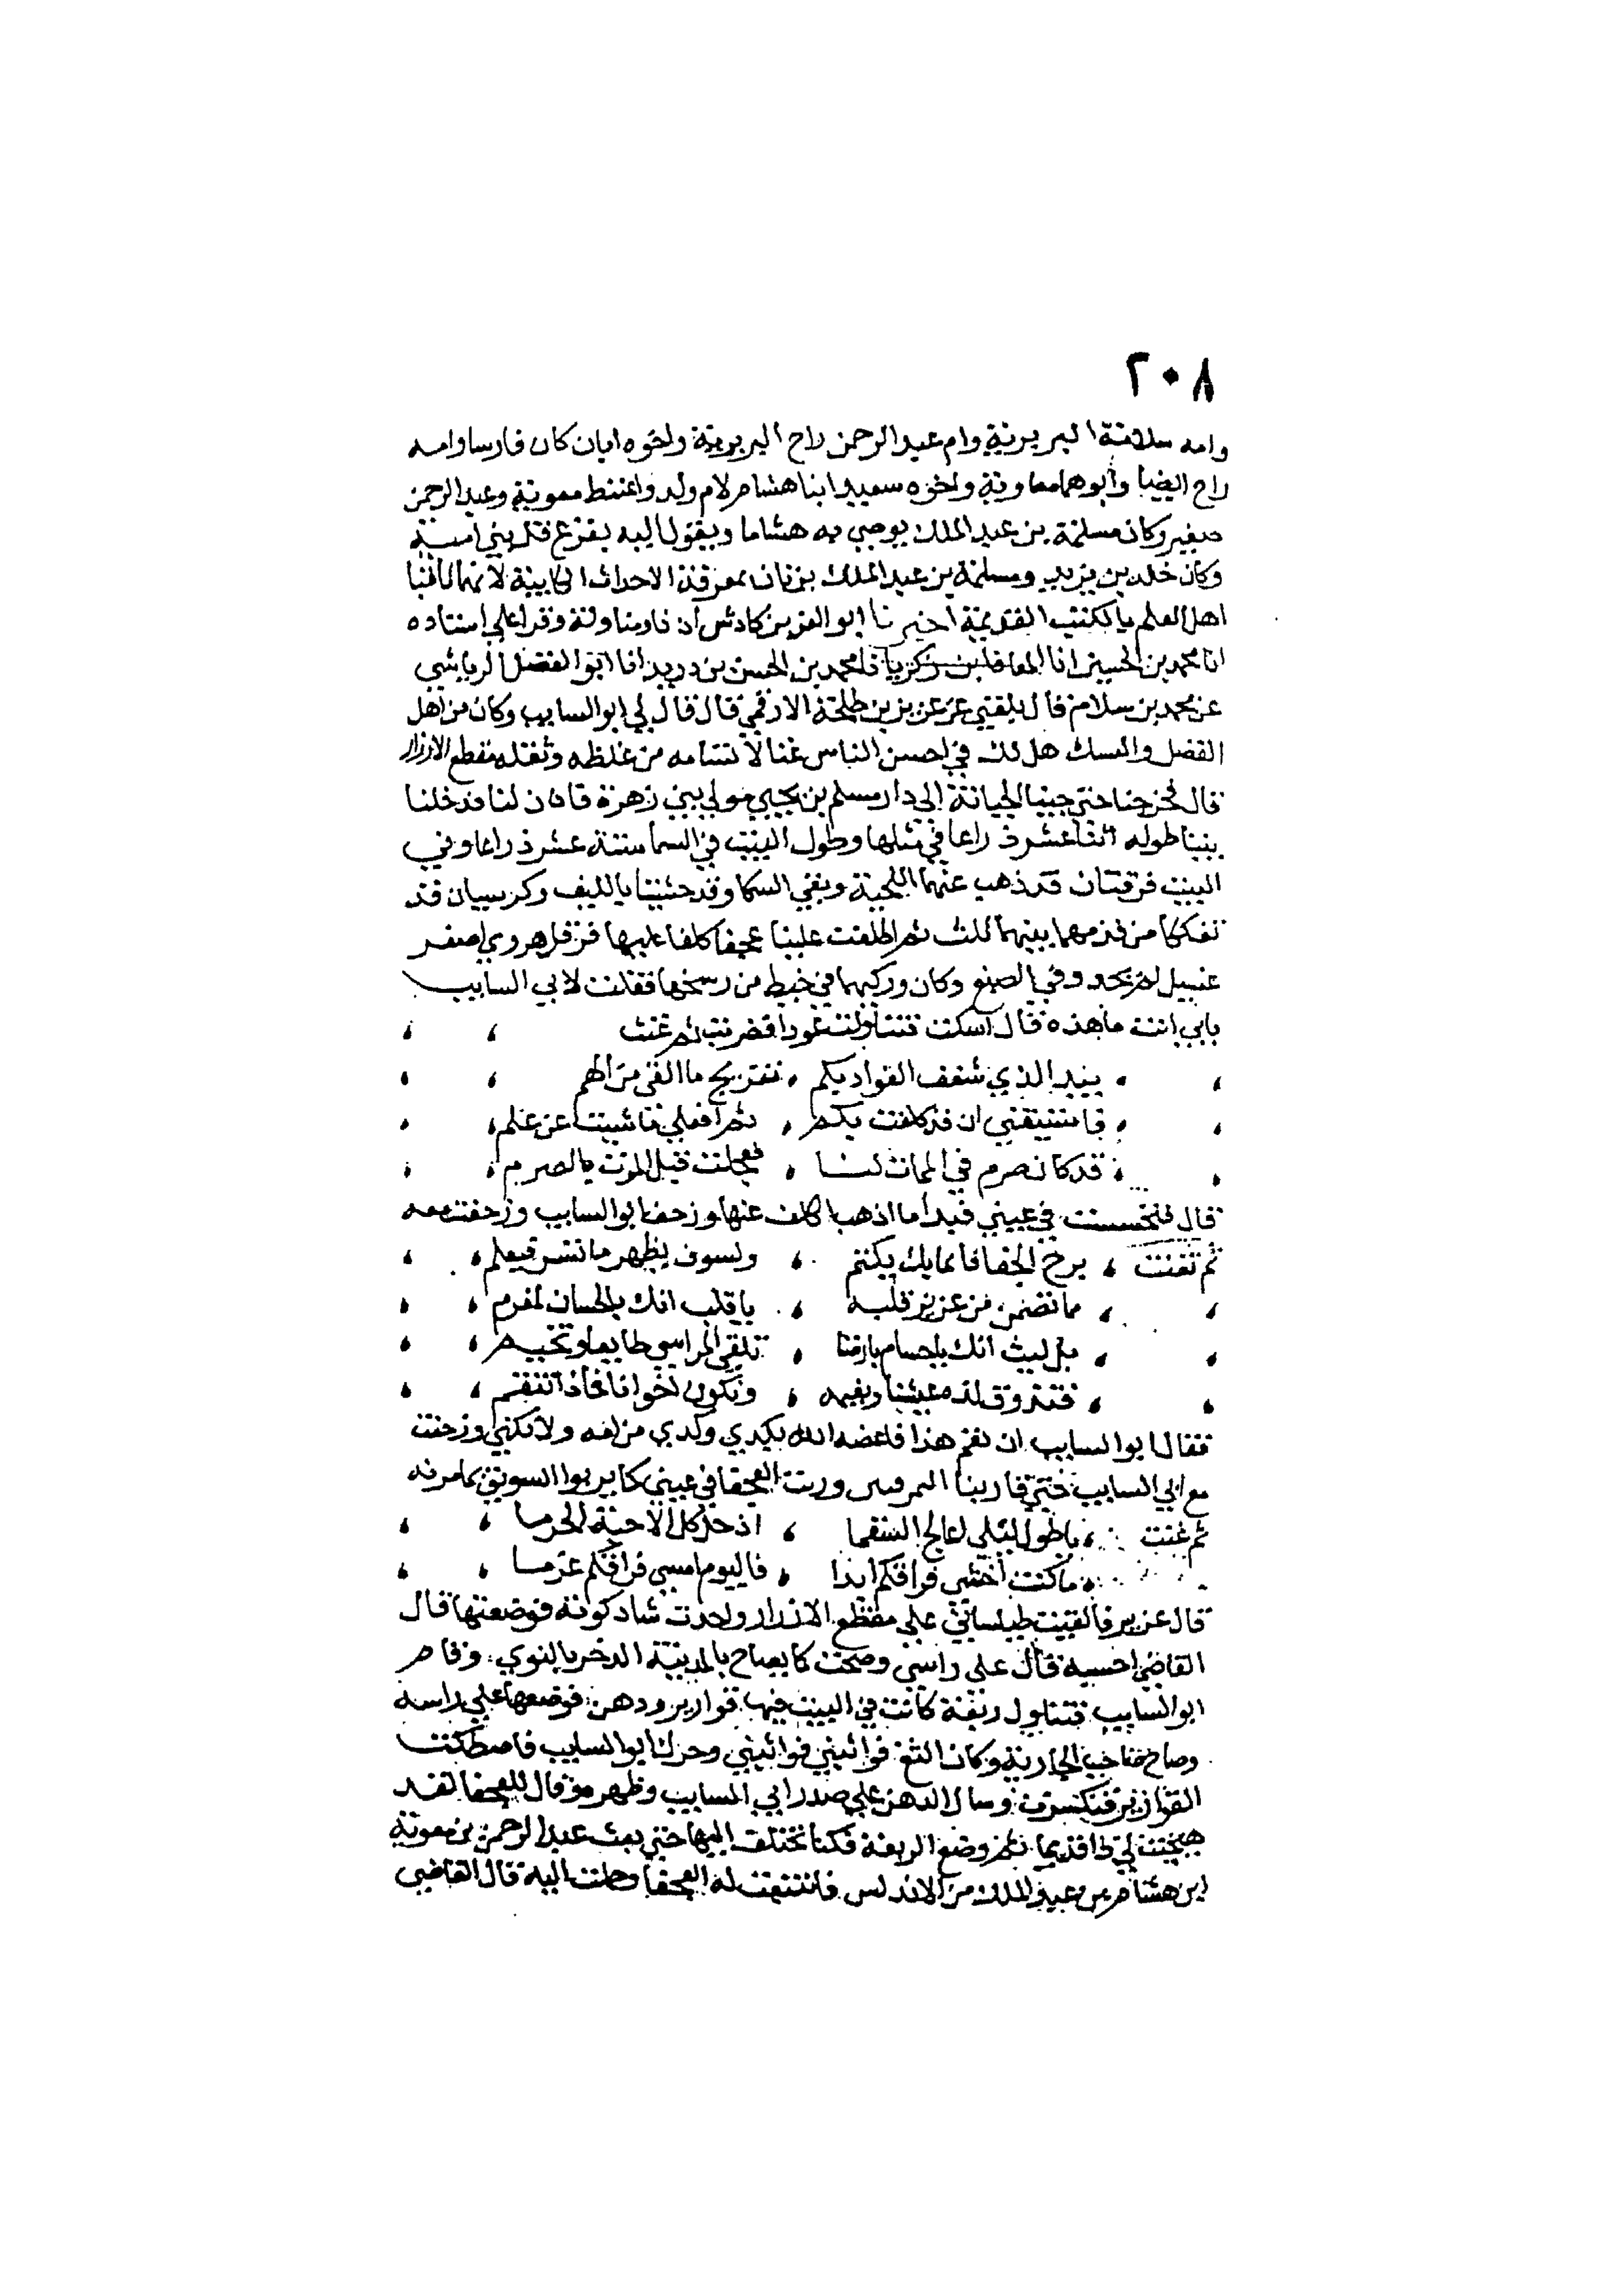 ٢٠٨
وامه سلامة البربرية وام عبد الرحمن راح البربرية واخوه ابان كان فارسا وامه
راح ايضا وابوهما معاوية واخوه سعيد ابنا هشام لام ولد واعتبط معوية وعبد الرحمن
صغير وكان مسلمة بن عبد الملك يوصي به هشاما ويقول اليه يفزع فل بني امية
وكان خلد بن يزيد ومسلمة بن عبد الملك بزنان بمعرفة الاحداث الكاينة لانهما لقيا
اهل العلم بالكتب القديمة اخبرنا ابو العز بن كادش اذنا ومناولة وقرا علي اسناده
انا محمد بن الحسين انا المعافا بن زكريا نا محمد بن الحسن بن دريد انا ابو الفضل الرياشي
عن محمد بن سلام قال بلغني عن عزيز بن طلحة الارقمي قال قال لي ابو السايب وكان من اهل
الفضل والنسك هل لك في احسن الناس غنا لا تسامه من غلظه وثقله مقطع الازرار
قال فخرجنا حتى جينا الجبانة الى دار مسلم بن يحيى مولى بني زهرة فاذن لنا فدخلنا
بيتا طوله اثنا عشر ذراعا في مثلها وطول البيت في السما ستة عشر ذراعا وفي
البيت فرقتان قد ذهب عنهما اللحمة وبقي السدا وقد حشيتا بالليف وكرسيان قد
تفككا من قدمهما بينهما ثلث ثم اطلعت علينا عجفا كلفا عليها قرقل هروي اصفر
غسيل لم يجد وفي الصبغ وكان وركيها في خيط من رسخها فقلت لابي السايب
بابي انت ما هذه قال اسكت فتناولت عودا فضربت ثم غنت
بيد الذي شغف الفواد بكم ، تفريج ما القى من الهم
فاستيقني ان قد كلفت بكم ، ثم افعلي ما شيت عن علم
قد كان صرم في الممات لنا ، فعجلت قبل الموت بالصرم
قال فتحسنت في عيني فبدا ما اذهب الكلف عنها وزحف ابو السايب وزحفت معه
ثم تغنت ، برح الخفا فايما بك يكتم ، ولسوف يظهر ما تسر فيعلم
مما تضمن من عزيز قلبه ، يا قلب انك بالحسان لمغرم
بل ليت انك يا حسام بارضنا ، تلقي المراسي طايعا وتخيم
فتذوق لذة عيشنا ونعيمه ، ونكون اخوانا فماذا تنقم
فقال ابو السايب ان نقم هذا فاعضه الله بكدي وكدي من لفه ولا تكني وزحفت
مع ابي السايب حتى قاربنا النمرقتين وربت العجفا في عيني كما يربوا السويق بما مزنه
ثم غنت ، يا طول ليلي اعالج السقما ، اذ حل كل الاحبة الحرما
ما كنت اخشى فراقكم ابدا ، فاليوم امسى فراقكم عزما
قال عزيز فالقيت طيلساني على مقطع الازرار واخذت شاذكونة فوضعتها قال
القاضي احسبه قال على راسي وصحت كما يصاح بالمدينة الدخر بالنوى وقام
ابو السايب فتناول ربعة كانت في البيت فيها قوارير ودهن فوضعها على راسه
وصاح صاحب الجارية وكان الثغ قوانيني قوانيني وحرك ابو السايب فاصطكت
القوارير فتكسرت وسال الدهن على صدر ابي السايب وظهره وقال للعجفا لقد
هيجت لي داء قديما ثم وضع الربعة فكنا نختلف اليها حتى بعث عبد الرحمن بن معوية
ابن هشام بن عبد الملك من الاندلس فابتيعت له العجفا وحملت اليه قال القاضي